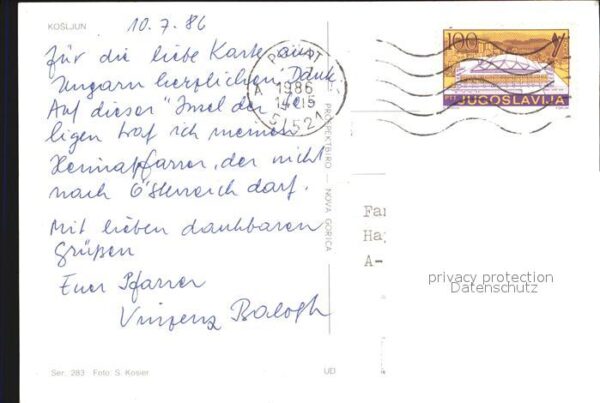 KOŠLJUN
10.7.86
Für die liebe Karte aus
Ungarn herzlichen Dank.
Auf dieser "Insel der Hei-
ligen traf ich meinen
Heimatpfarrer, der nicht
nach Österreich darf.
Mit lieben dankbaren
Grüßen
Euer Pfarrer
Vinzenz Balogh
Ser. 283 Foto: S. Kosier
PROSPEKTBIRO — NOVA GORICA
UD
A 1986
51521
100
JUGOSLAVIJA
Fa
Ha
A-
privacy protection
Datenschutz